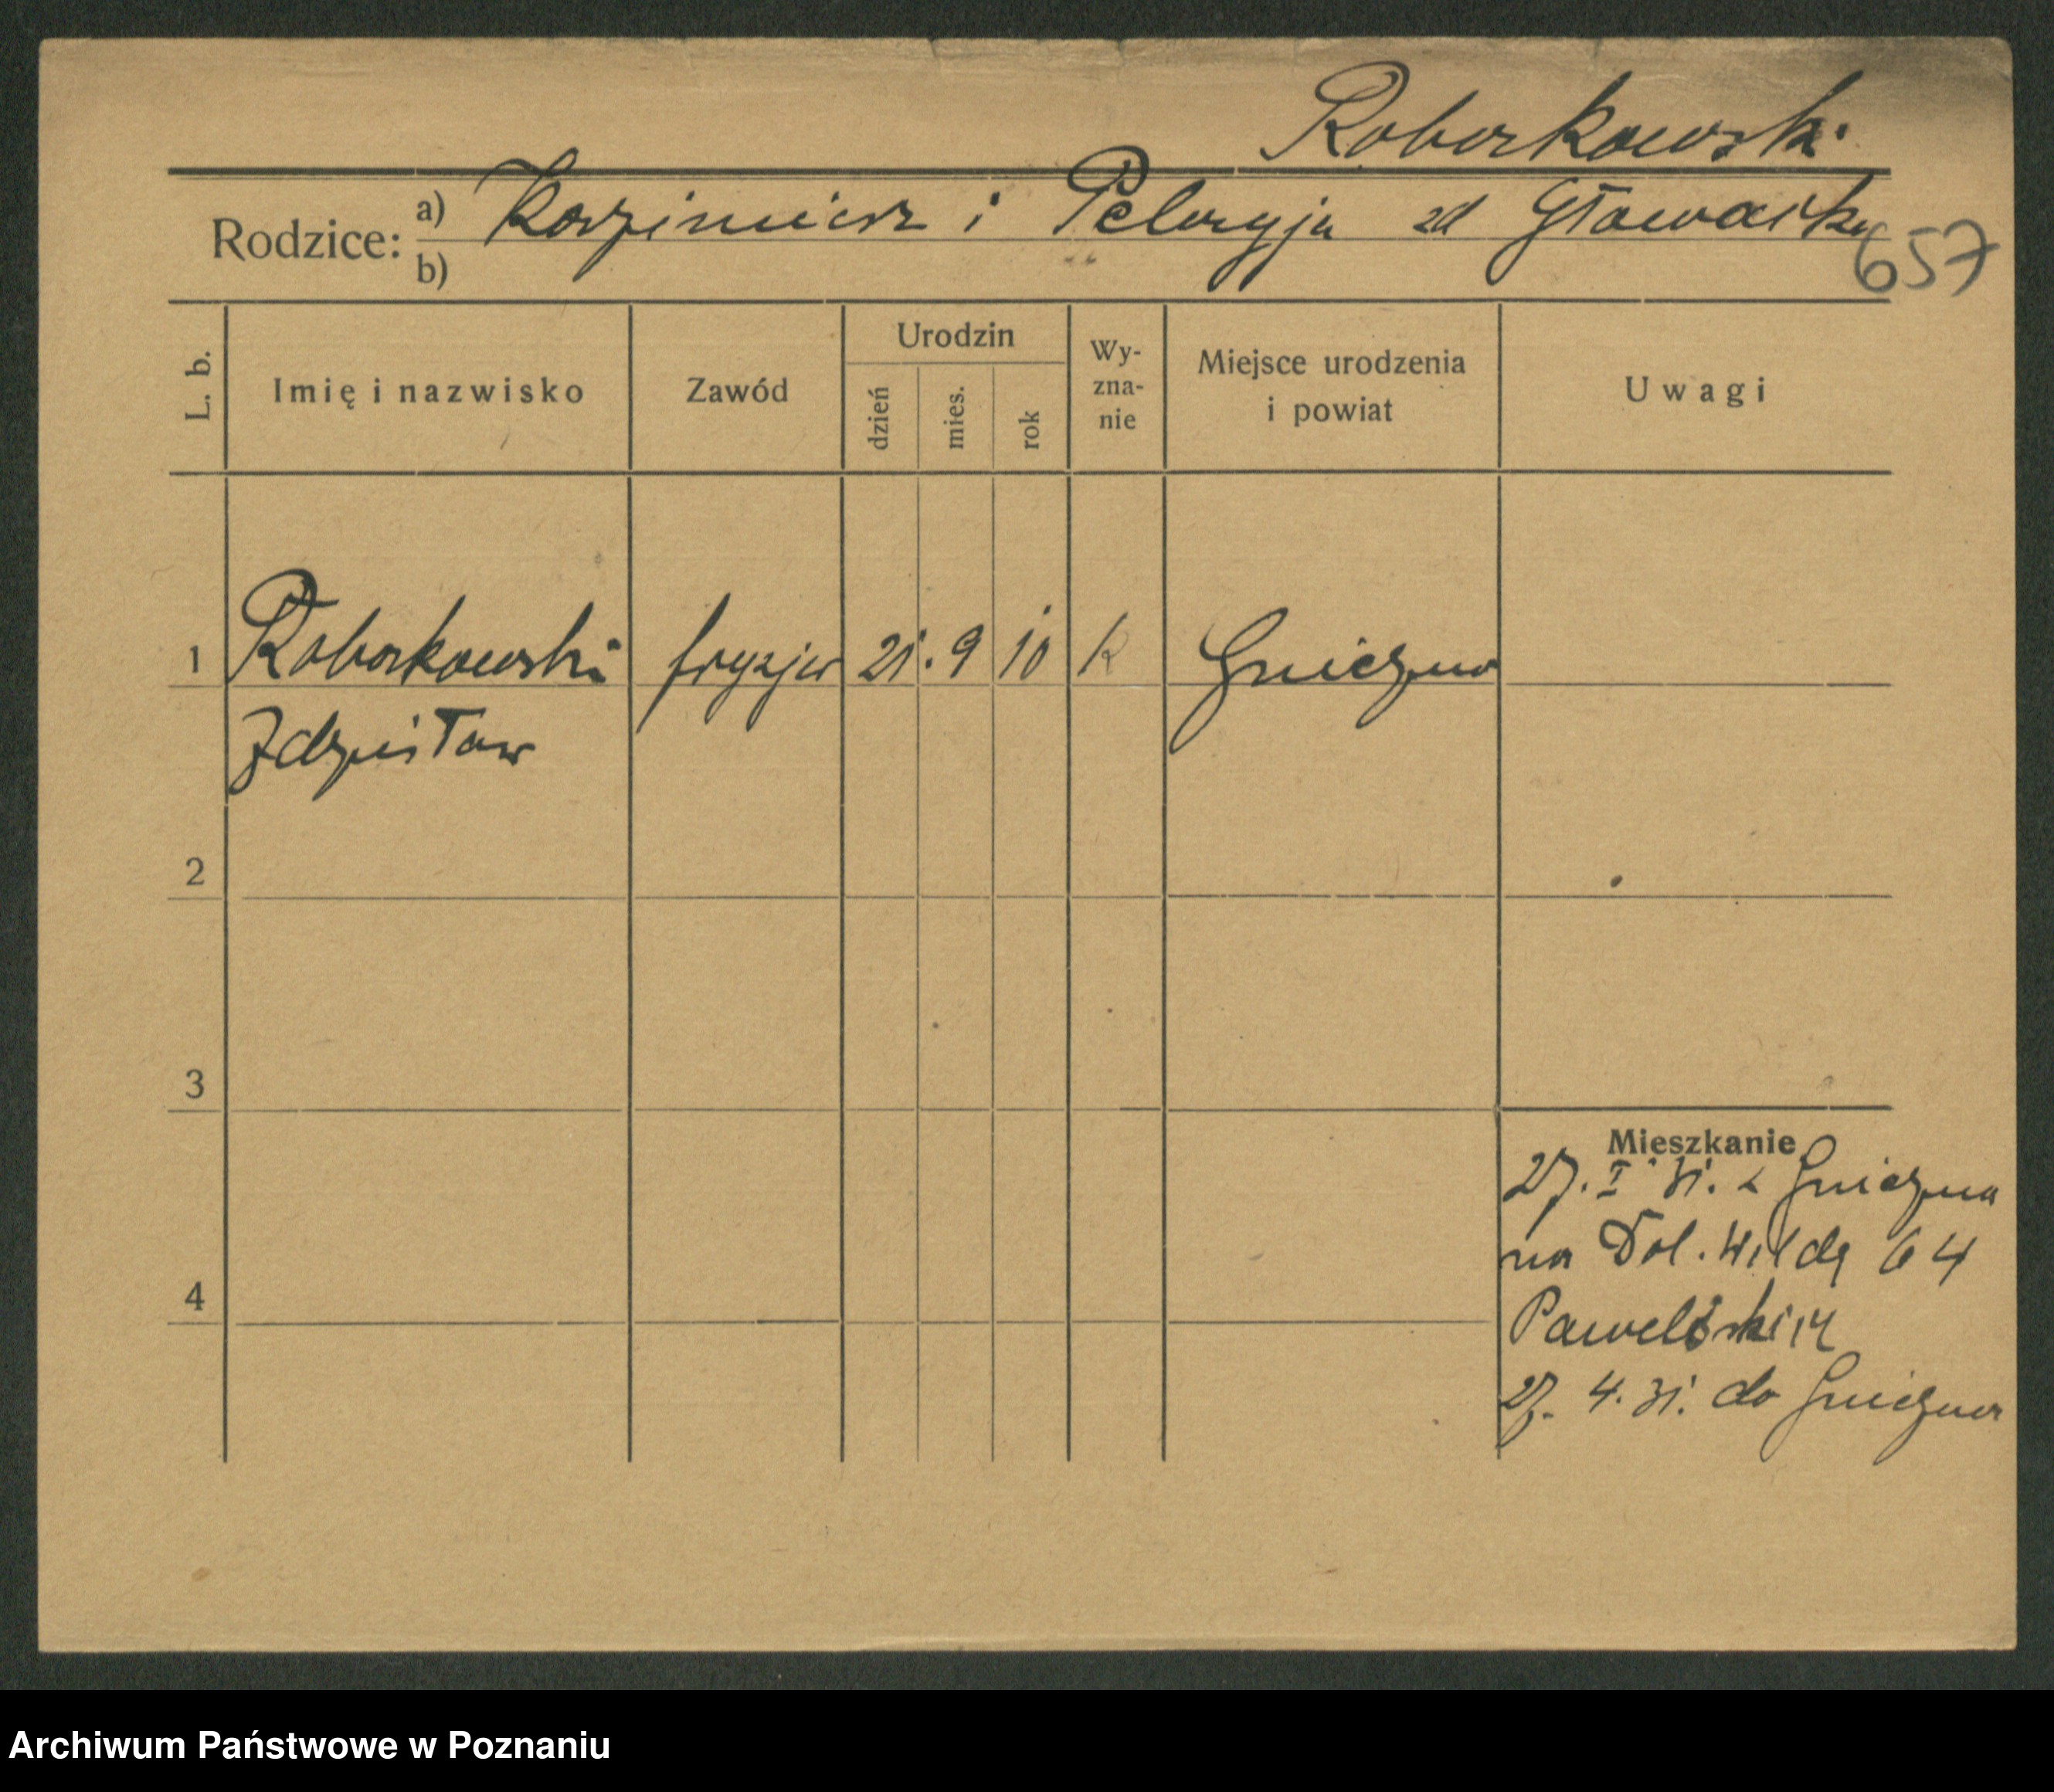 Roborkowski
Rodzice: a) Kazimierz i Pelagja zd Głowacka
b)
657
L. b.
Imię i nazwisko
Zawód
Urodzin
dzień
mies.
rok
Wy-
zna-
nie
Miejsce urodzenia
i powiat
Uwagi
1 Roborkowski fryzjer 21. 9 10 k Gniezno
Zdzisław
2
3
4
Mieszkanie
27. I 31. z Gniezna
na Dol. Wildę 64
27. 4. 31. do Gniezna
Archiwum Państwowe w Poznaniu